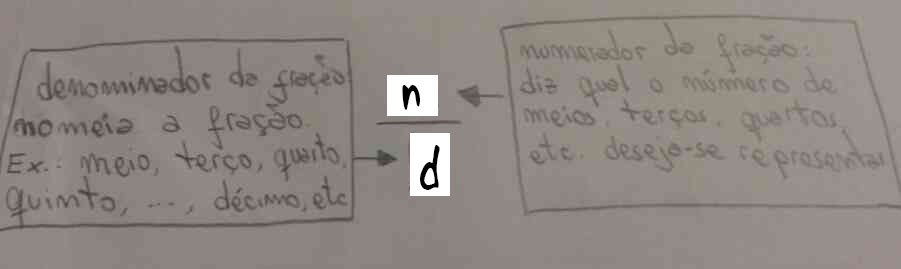 denominador da fração
nomeia a fração.
Ex.: meio, terço, quarto,
quinto, ..., décimo, etc
n
d
numerador da fração:
diz qual o número de
meios, terços, quartos,
etc. deseja-se representar